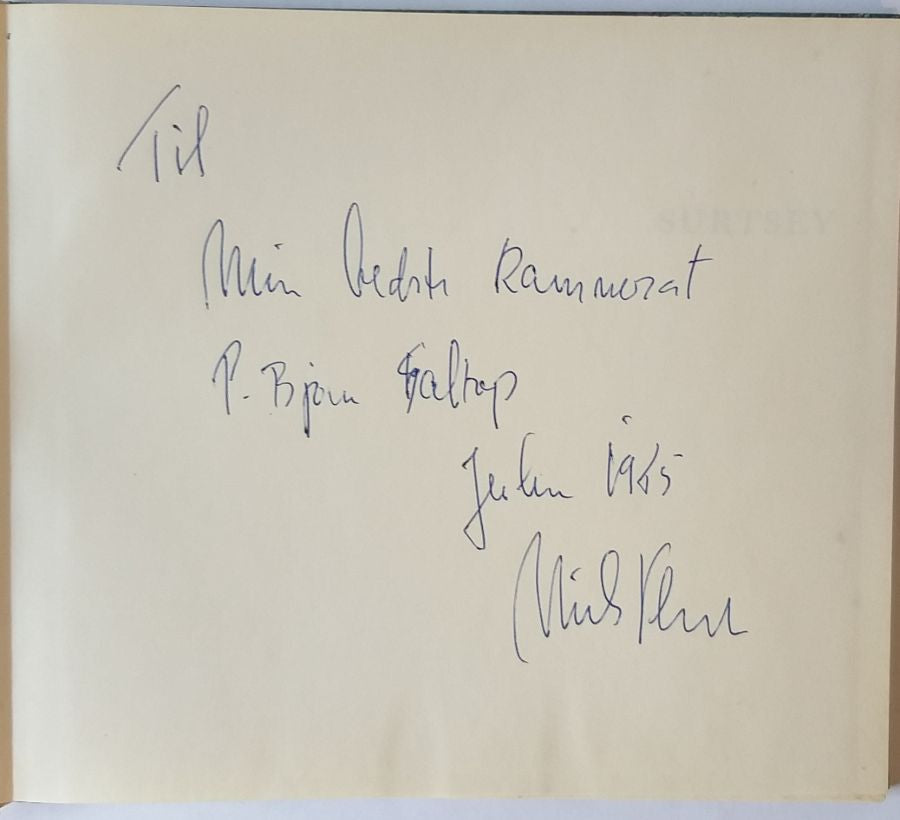 Til
SURTSEY
Min bedste Kammerat
P. Bjørn Saltrop
Julen 1965
Niels